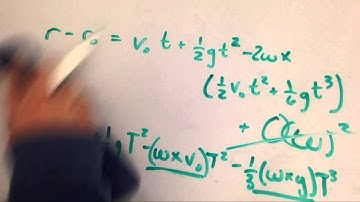 r - r₀ = v₀ t + ½ g t² - 2ω x
(½ v₀ t² + ⅙ g t³)
+ ( )(ω)²
½ g T² - (ω x v₀) T² - ⅓ (ω x g) T³